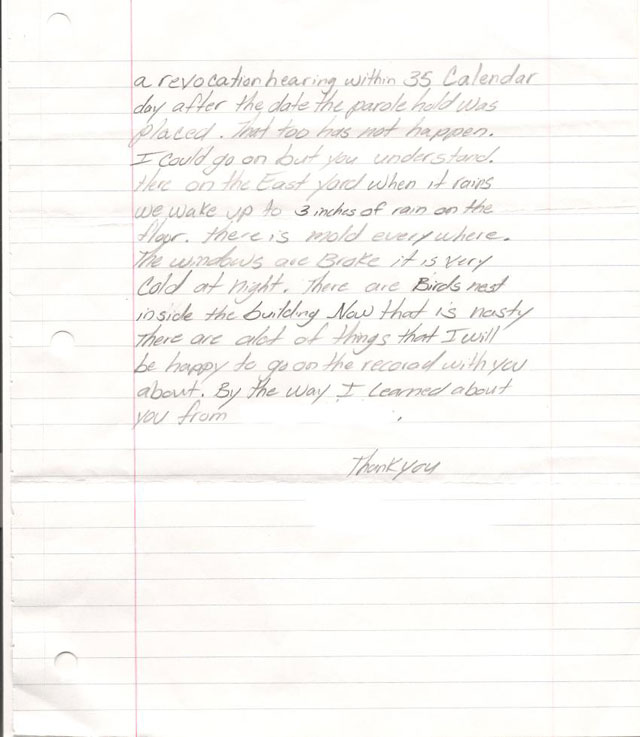 a revocation hearing within 35 Calendar
day after the date the parole hold was
placed. That too has not happen.
I could go on but you understand.
Here on the East Yard when it rains
we wake up to 3 inches of rain on the
floor. there is mold everywhere.
The windows are Broke it is very
Cold at night. There are Birds nest
inside the building Now that is nasty
There are alot of things that I will
be happy to go on the recorad with you
about. By the way I Learned about
you from .
Thank you